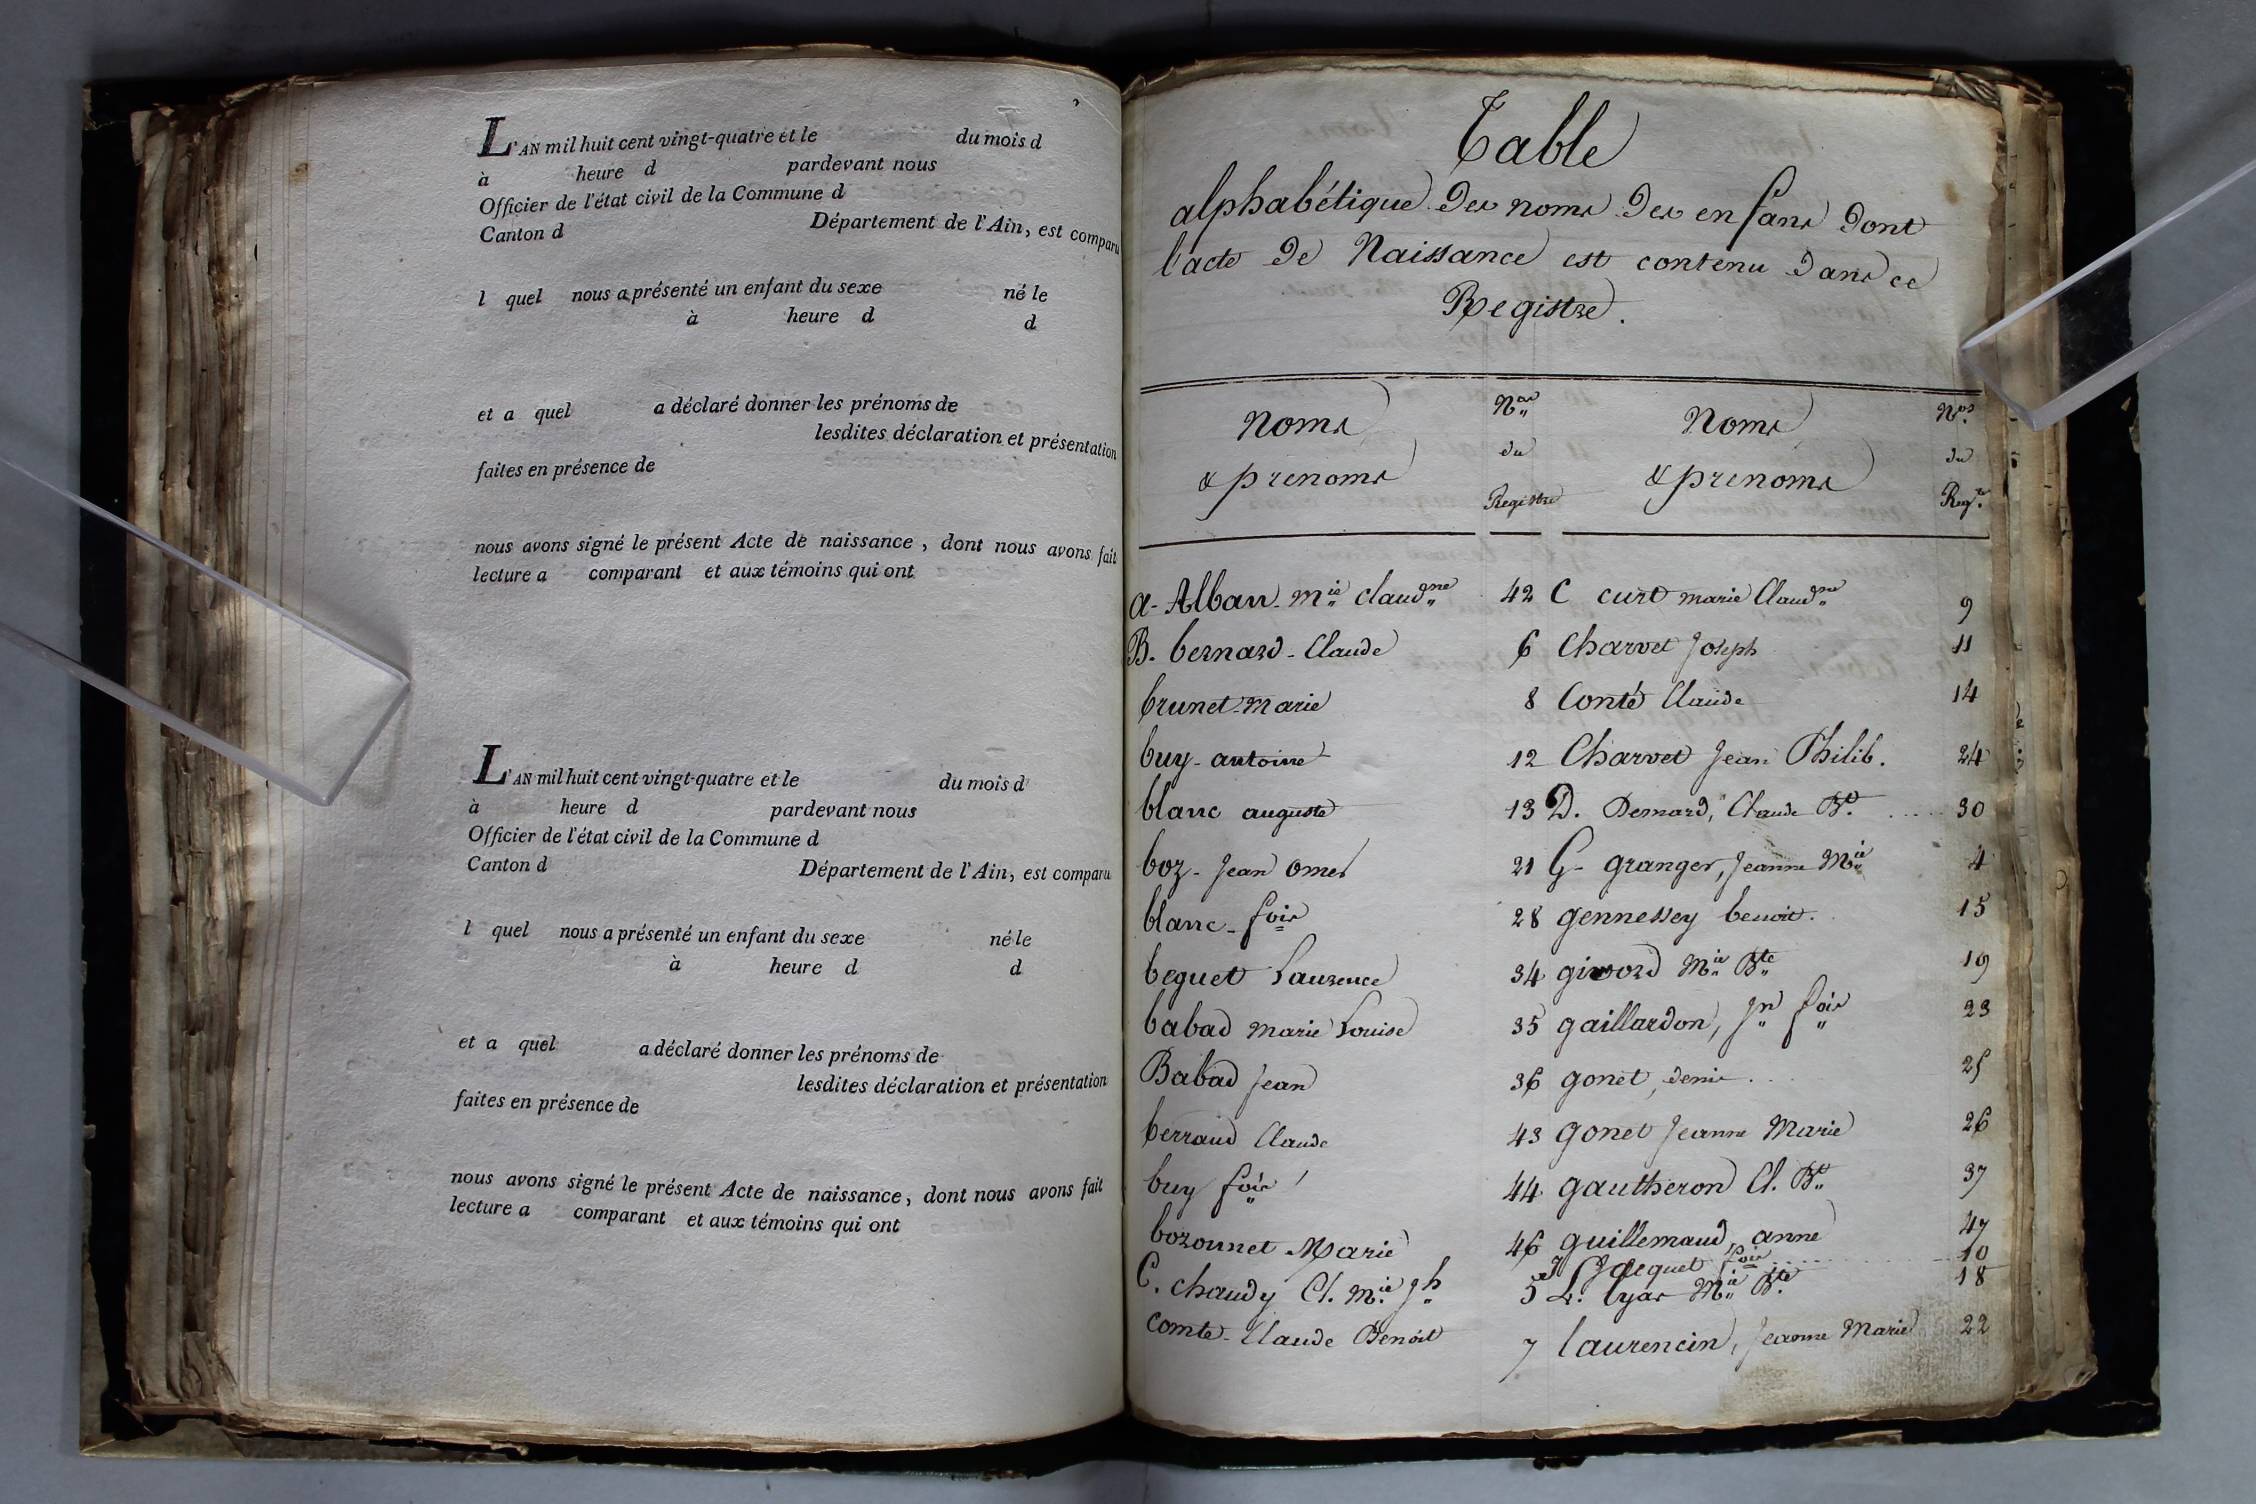 L'AN mil huit cent vingt-quatre et le du mois d
à heure d pardevant nous
Officier de l'état civil de la Commune d
Canton d Département de l'Ain, est comparu
l quel nous a présenté un enfant du sexe né le
à heure d d
et a quel a déclaré donner les prénoms de
lesdites déclaration et présentation
faites en présence de
nous avons signé le présent Acte de naissance, dont nous avons fait
lecture a comparant et aux témoins qui ont
L'AN mil huit cent vingt-quatre et le du mois d
à heure d pardevant nous
Officier de l'état civil de la Commune d
Canton d Département de l'Ain, est comparu
l quel nous a présenté un enfant du sexe né le
à heure d d
et a quel a déclaré donner les prénoms de
lesdites déclaration et présentation
faites en présence de
nous avons signé le présent Acte de naissance, dont nous avons fait
lecture a comparant et aux témoins qui ont
Table
alphabétique des noms des enfans dont
l'acte de Naissance est contenu dans ce
Registre.
Noms
& prenoms
Nos
du
Registre
Noms
& prenoms
Nos
du
Regre
a- Alban Mie claudne 42
B. bernard Claude 6
brunet Marie 8
buy antoine 12
blanc auguste 13
boz - Jean omer 21
blanc - fois 28
beguet Laurence 34
babad marie Louise 35
Babad Jean 36
berraud Claude 43
buy fois 44
bozonnet Marie 46
C. chaudy Cl. Mie Jh 5
comte Claude Benoit 7
C curt marie Claudne 9
Charvet Joseph 11
Conté Claude 14
Charvet Jean Philib. 24
D. Demard, Claude Bt. 30
G- granger, Jeanne Mie 4
gennessey benoit. 15
givord Mie Bte 19
gaillardon, Jn fois 23
gonet, denis 25
gonet Jeanne Marie 26
gautheron Cl. Bt 37
guillemaud, anne 47
J Jacquet fois 10
L. lyas Mie Bte 18
laurencin, Jeanne Marie 22